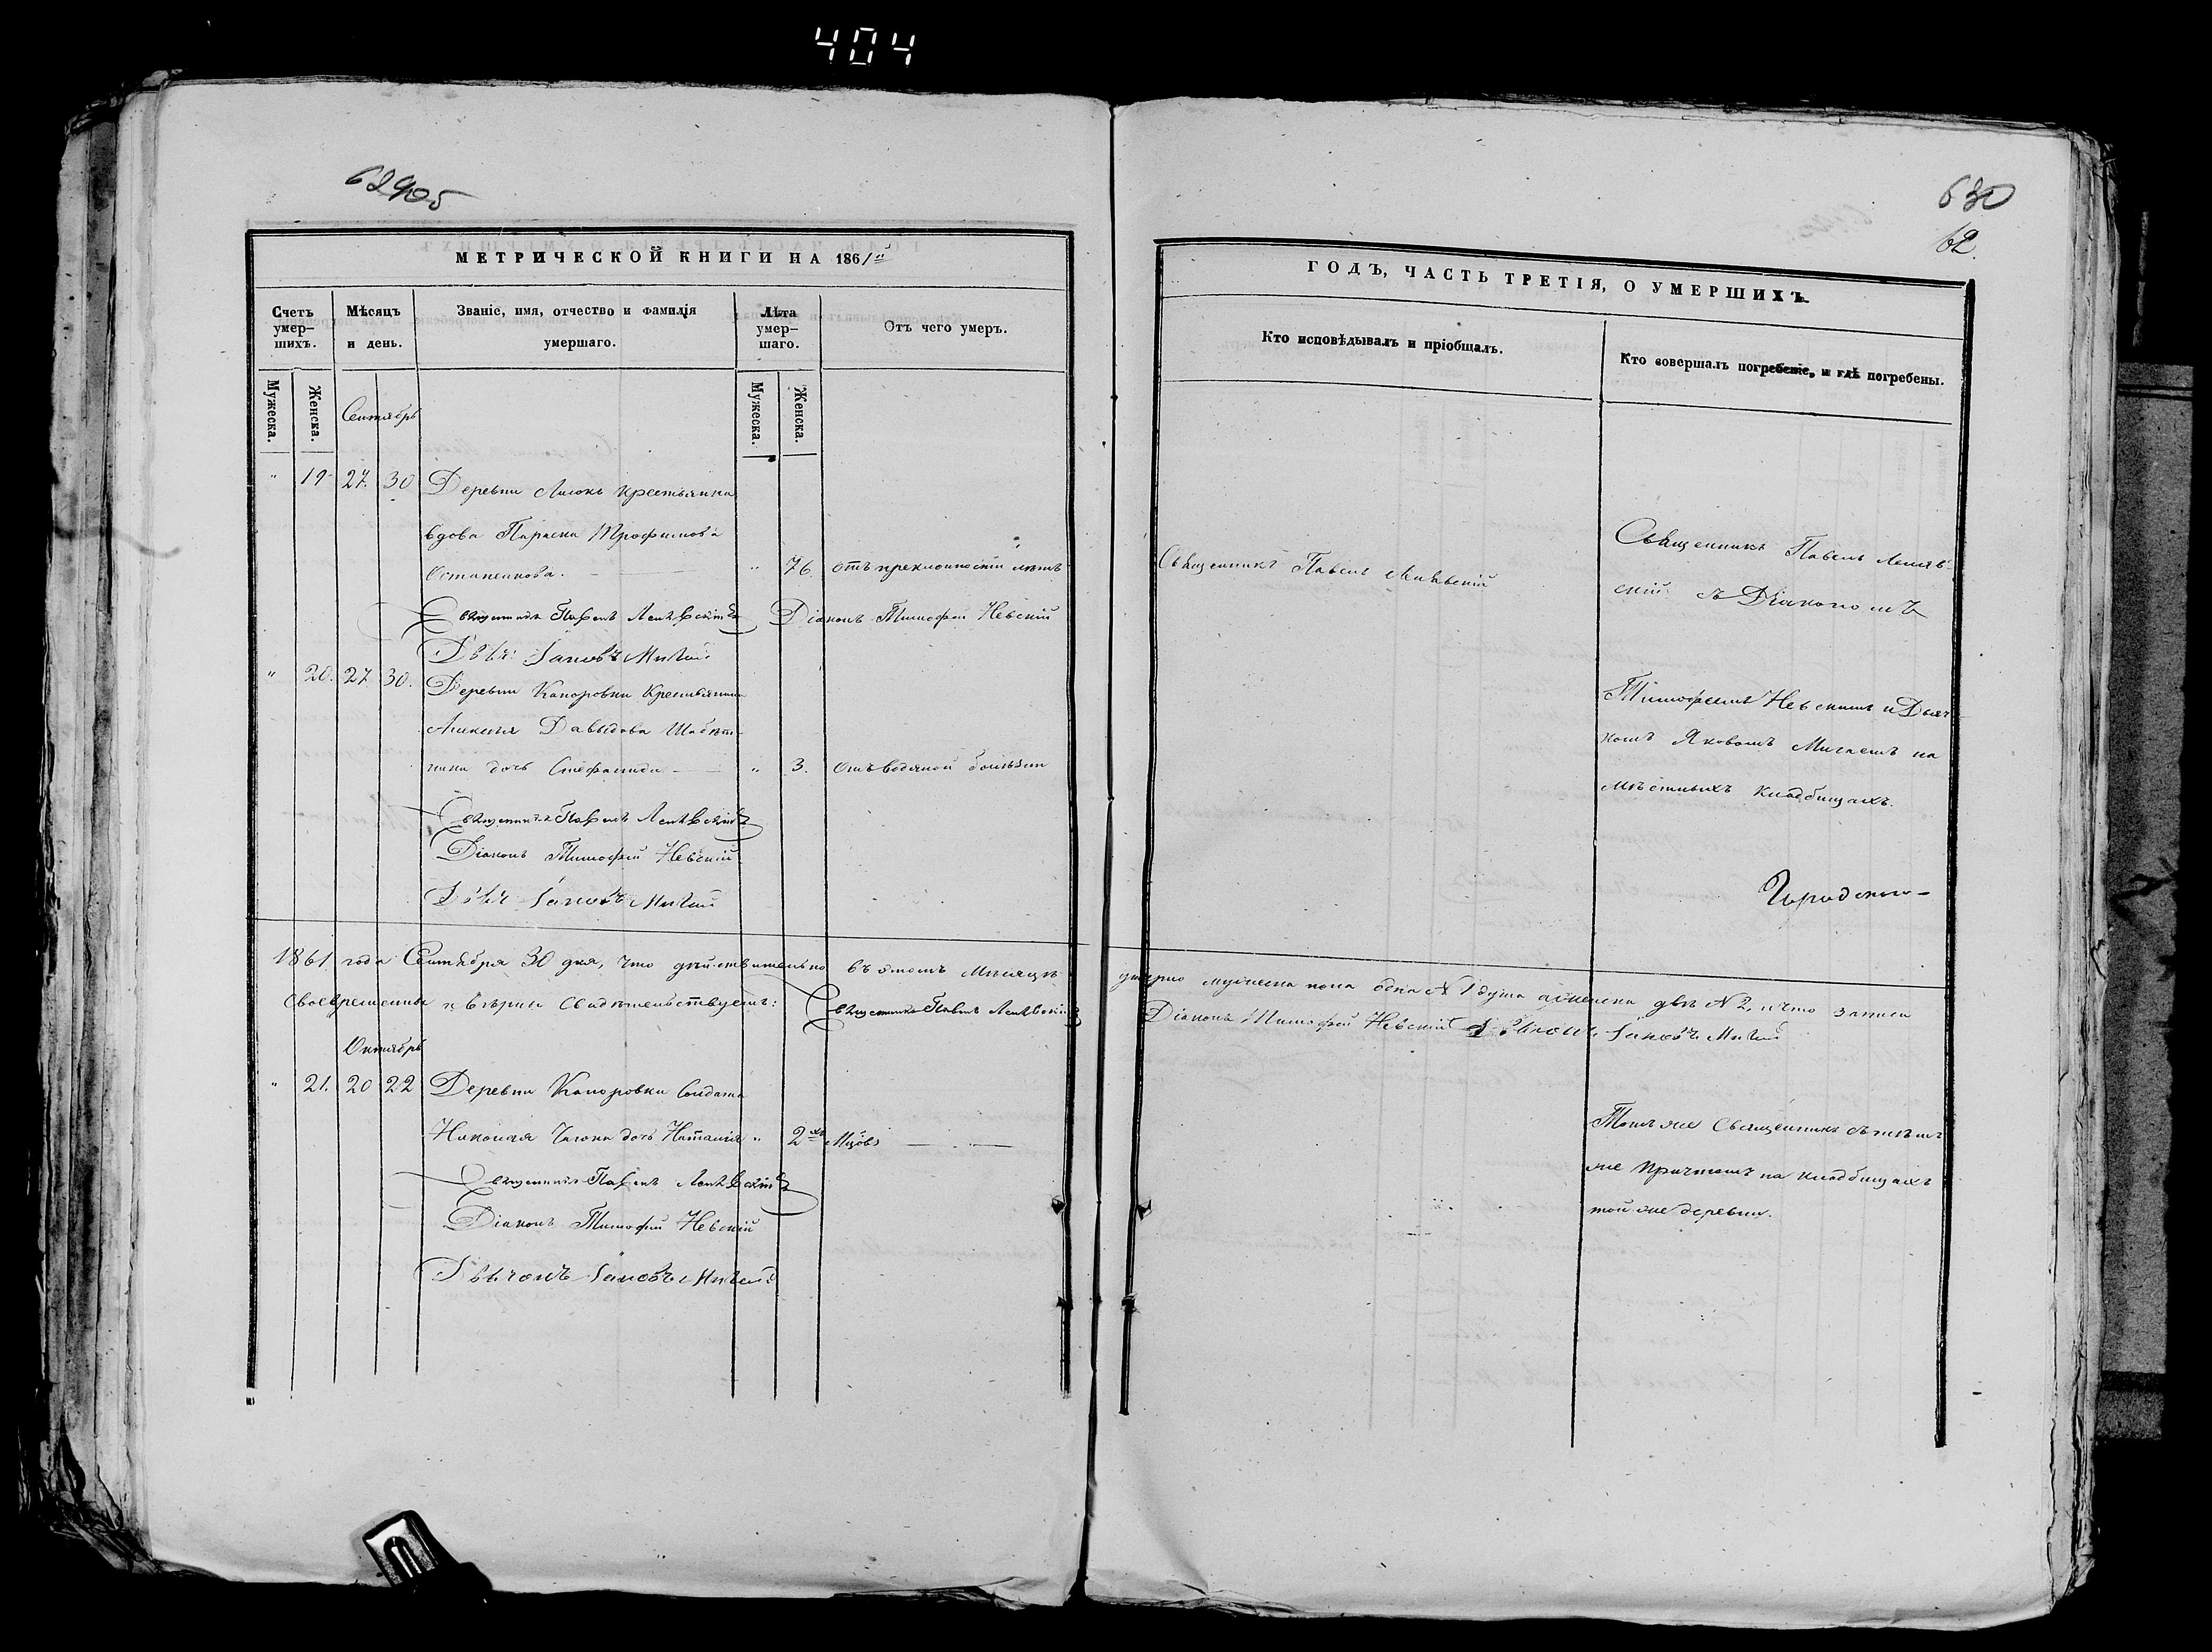 404
62905
630
62.
МЕТРИЧЕСКОЙ КНИГИ НА 1861й
Счетъ умер-шихъ.
Мѣсяцъ и день.
Званіе, имя, отчество и фамилія умершаго.
Лѣта умер-шаго.
Отъ чего умеръ.
Мужеска.
Женска.
Мужеска.
Женска.
Сентябрь
" 19 27. 30 Деревни крестьянка
вдова Параска Трофимова
Остапенкова. — " 76. отъ преклонности лѣтъ
Священникъ Павелъ Діаконъ Тимофей Невскій
Іаковъ
" 20. 27. 30. Деревни Капоровки Крестьянина
Алексѣя Давыдова
дочь Стефанида — " 3. Отъ водяной болѣзни
Священникъ Павелъ
Діаконъ Тимофей Невскій
Іаковъ
1861 года Сентября 30 дня, что дѣйствительно въ этомъ Мѣсяцѣ
своевременны и вѣрны Свидѣтельствуемъ: Священникъ Павелъ
Октябрь
" 21. 20 22 Деревни Капоровки Солдата
Николая дочь Наталія " 2
Священникъ Павелъ
Діаконъ Тимофей Невскій
Дьячокъ Іаковъ
ГОДЪ, ЧАСТЬ ТРЕТІЯ, О УМЕРШИХЪ.
Кто исповѣдывалъ и пріобщалъ.
Кто совершалъ погребеніе, и гдѣ погребены.
Священникъ Павелъ
Священникъ Павелъ
скій съ Діакономъ
Тимофеемъ Невскимъ и Дьяч
комъ Яковомъ на
мѣстныхъ кладбищахъ.
умерло мужеска пола одна № 1 душа а женска двѣ № 2, и что записи
Діаконъ Тимофей Невскій Дьячокъ Іаковъ
Тотъ же Священникъ съ тѣмъ
же причтомъ на кладбищахъ
той же деревни.